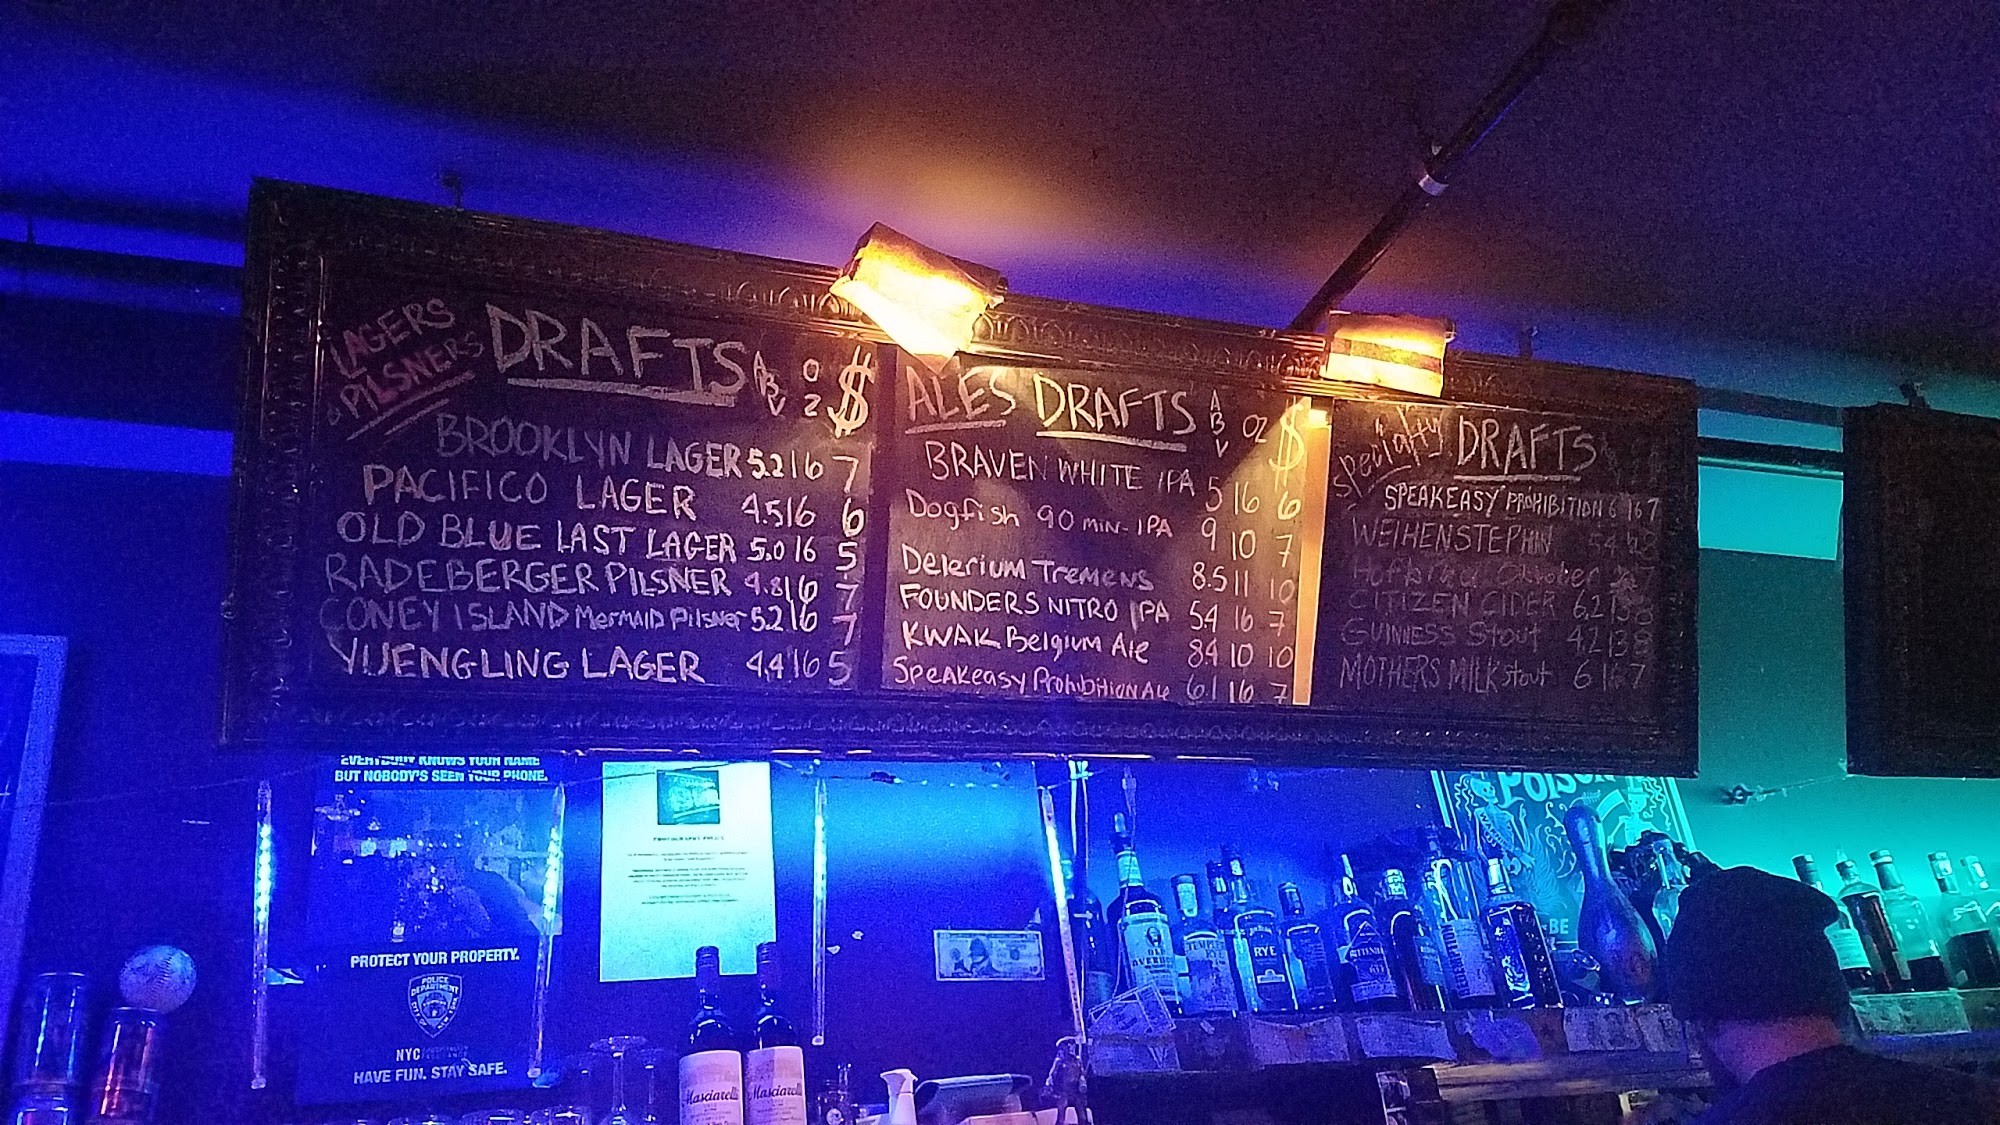 LAGERS
& PILSNERS
DRAFTS ABV OZ $
BROOKLYN LAGER 5.2 16 7
PACIFICO LAGER 4.5 16 6
OLD BLUE LAST LAGER 5.0 16 5
RADEBERGER PILSNER 4.8 16 7
CONEY ISLAND MERMAID PILSNER 5.2 16 7
YUENGLING LAGER 4.4 16 5
ALES DRAFTS ABV OZ $
BRAVEN WHITE IPA 5 16 6
Dogfish 90 MIN- IPA 9 10 7
Delerium Tremens 8.5 11 10
FOUNDERS NITRO IPA 54 16 7
KWAK Belgium Ale 84 10 10
Speakeasy Prohibition Ale 61 16 7
Specialty DRAFTS
SPEAKEASY PROHIBITION 6 16 7
WEIHENSTEPHIN 54
CITIZEN CIDER 6.2 13 8
GUINNESS Stout 4.2 13 8
MOTHERS MILK stout 6 16 7
EVERYBODY KNOWS YOUR NAME
BUT NOBODY'S SEEN YOUR PHONE.
PROTECT YOUR PROPERTY.
POLICE
DEPARTMENT
NYC
HAVE FUN. STAY SAFE.
Masciarelli
Masciarelli
RYE
POISON